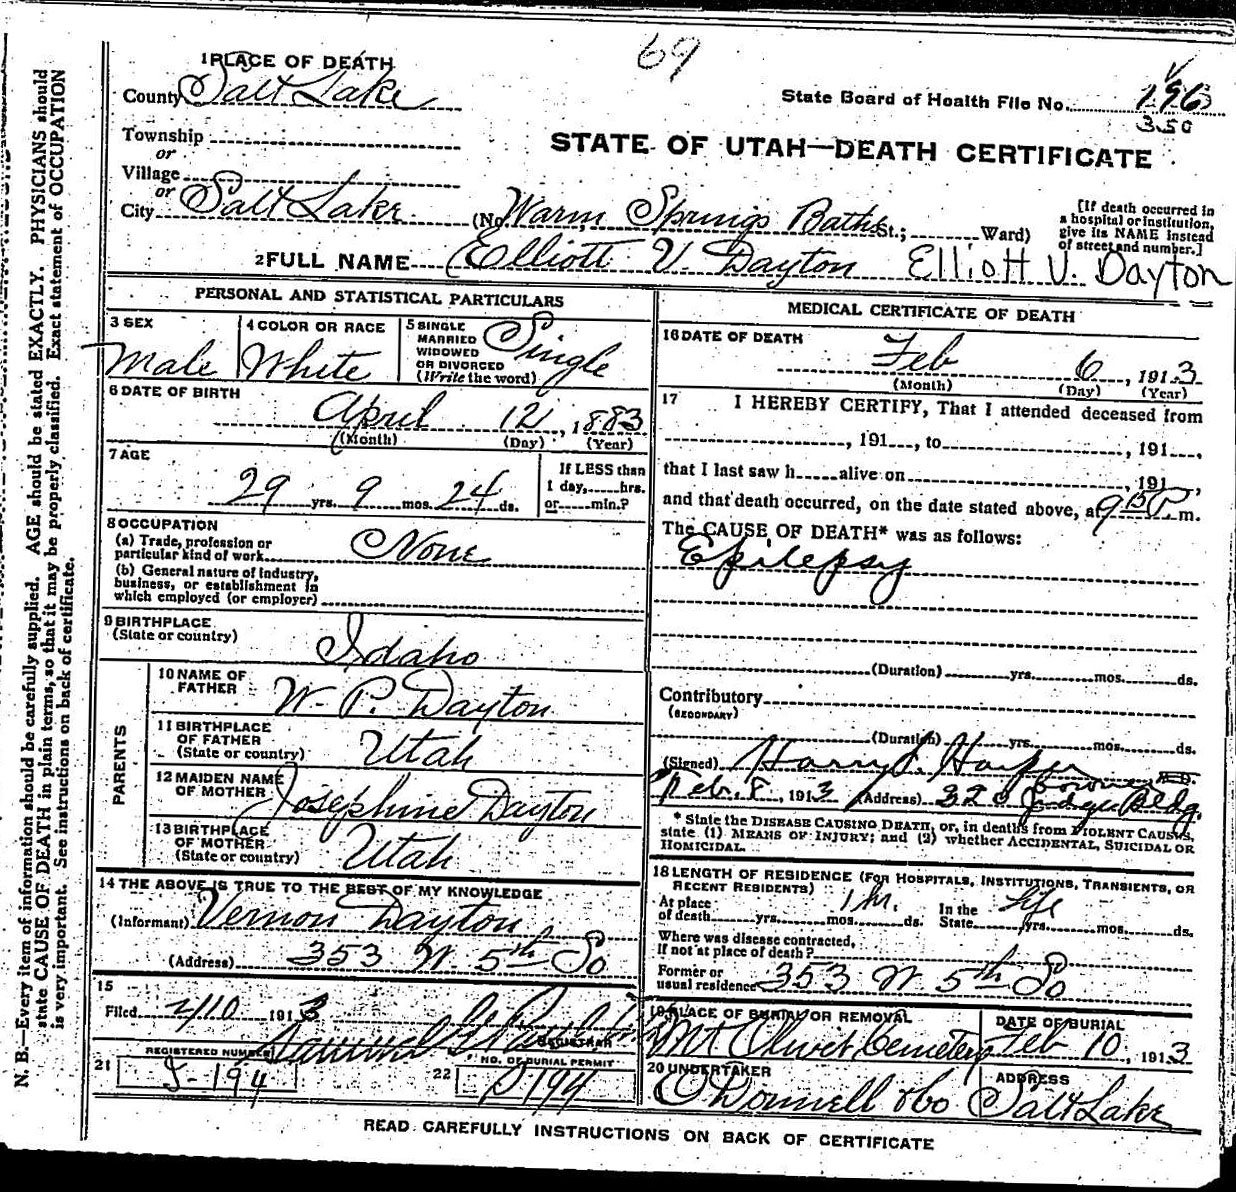 69
1 PLACE OF DEATH
County Salt Lake
State Board of Health File No. 196
350
Township
or
Village
or
City Salt Lake
STATE OF UTAH—DEATH CERTIFICATE
(No. Warm Springs Baths St.; Ward)
[If death occurred in
a hospital or institution,
give its NAME instead
of street and number.]
2 FULL NAME Elliott V. Dayton Elliott V. Dayton
PERSONAL AND STATISTICAL PARTICULARS
3 SEX
Male
4 COLOR OR RACE
White
5 SINGLE
MARRIED
WIDOWED
OR DIVORCED
(Write the word)
Single
6 DATE OF BIRTH
April 12, 1883
(Month) (Day) (Year)
7 AGE
29 yrs. 9 mos. 24 ds.
If LESS than
1 day, hrs.
or min.?
8 OCCUPATION
(a) Trade, profession or
particular kind of work None
(b) General nature of industry,
business, or establishment in
which employed (or employer)
9 BIRTHPLACE
(State or country)
Idaho
PARENTS
10 NAME OF
FATHER
W. P. Dayton
11 BIRTHPLACE
OF FATHER
(State or country)
Utah
12 MAIDEN NAME
OF MOTHER
Josephine Dayton
13 BIRTHPLACE
OF MOTHER
(State or country)
Utah
14 THE ABOVE IS TRUE TO THE BEST OF MY KNOWLEDGE
(Informant) Vernon Dayton
(Address) 353 W. 5th So
15
Filed 2/10 1913
REGISTRAR
21 REGISTERED NUMBER
J-194
22 NO. OF BURIAL PERMIT
D194
MEDICAL CERTIFICATE OF DEATH
16 DATE OF DEATH
Feb 6, 1913
(Month) (Day) (Year)
17 I HEREBY CERTIFY, That I attended deceased from
, 191 , to , 191 ,
that I last saw h alive on , 191 ,
and that death occurred, on the date stated above, at 9 15 P. m.
The CAUSE OF DEATH* was as follows:
Epilepsy
(Duration) yrs. mos. ds.
Contributory
(SECONDARY)
(Duration) yrs. mos. ds.
(Signed) Harry S. Harper M. D.
Coroner
Feb. 8, 1913 (Address) 320 Judge Bldg.
* State the DISEASE CAUSING DEATH, or, in deaths from VIOLENT CAUSES,
state (1) MEANS OF INJURY; and (2) whether ACCIDENTAL, SUICIDAL OR
HOMICIDAL.
18 LENGTH OF RESIDENCE (FOR HOSPITALS, INSTITUTIONS, TRANSIENTS, OR
RECENT RESIDENTS)
At place
of death yrs. mos. ds. 1 hr.
In the
State yrs. mos. ds. Life
Where was disease contracted,
if not at place of death?
Former or
usual residence 353 W 5th So
19 PLACE OF BURIAL OR REMOVAL
Mt Olivet Cemetery
DATE OF BURIAL
Feb 10, 1913
20 UNDERTAKER
O'Donnell & Co
ADDRESS
Salt Lake
READ CAREFULLY INSTRUCTIONS ON BACK OF CERTIFICATE
N. B.—Every item of information should be carefully supplied. AGE should be stated EXACTLY. PHYSICIANS should
state CAUSE OF DEATH in plain terms, so that it may be properly classified. Exact statement of OCCUPATION
is very important. See instructions on back of certificate.